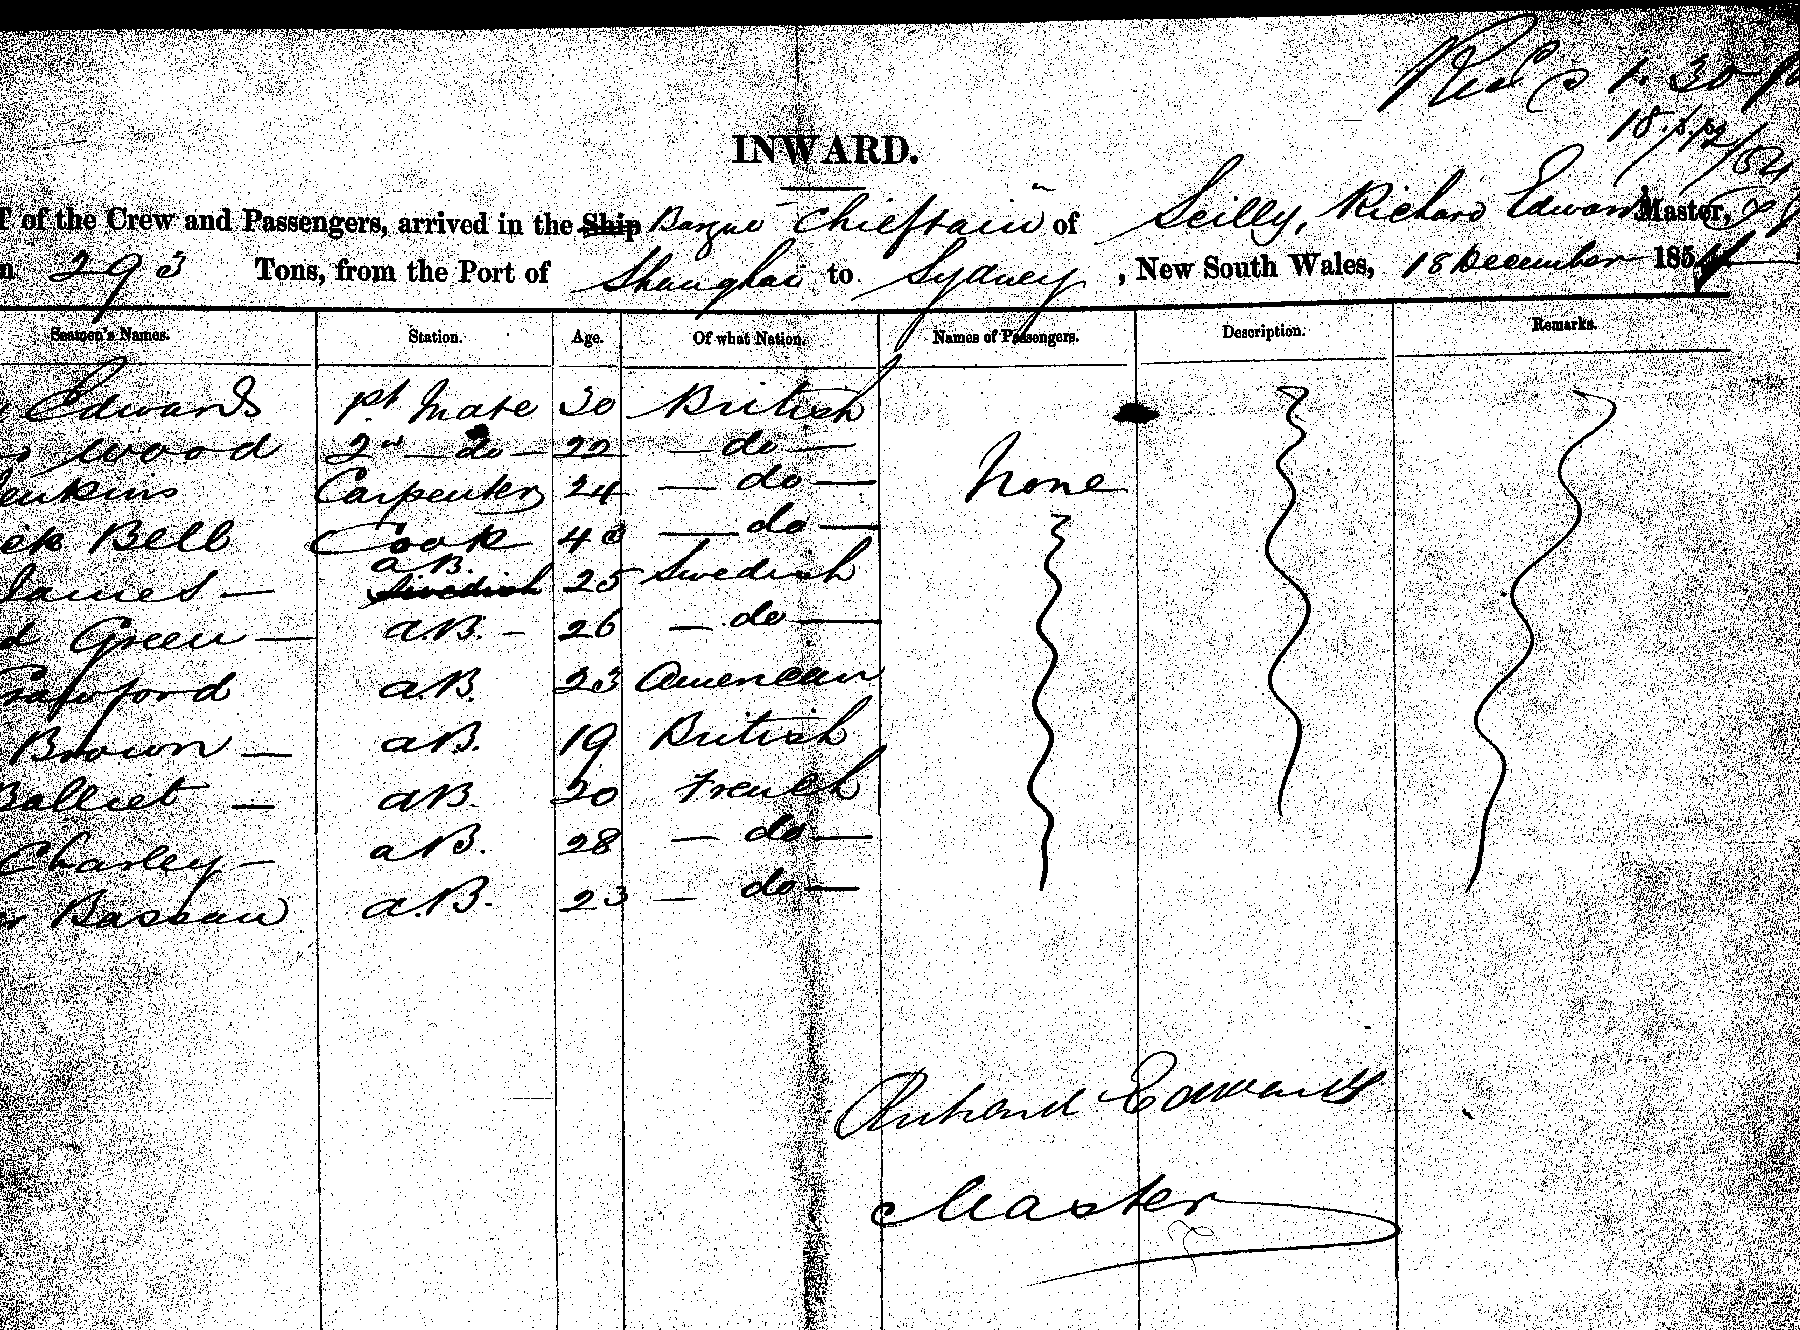 1.30
18/12/54
INWARD.
of the Crew and Passengers, arrived in the Ship Barque Chieftain of Scilly, Richard Edwards Master,
293 Tons, from the Port of Shanghai to Sydney, New South Wales, 18 December 1854
Seamen's Names. Station. Age. Of what Nation. Names of Passengers. Description. Remarks.
Edwards 1st Mate 30 British
Wood 2nd — do — 22 — do —
Jenkins Carpenter 24 — do — None
Bell Cook 43 — do —
James — a.B. Swedish 25 Swedish
Green — a.B. — 26 — do —
Crawford a.B. 23 American
Brown — a.B. 19 British
Balliet — a.B. 20 French
Charley — a.B. 28 — do —
Bassau a.B. 23 — do —
Richard Edwards
Master